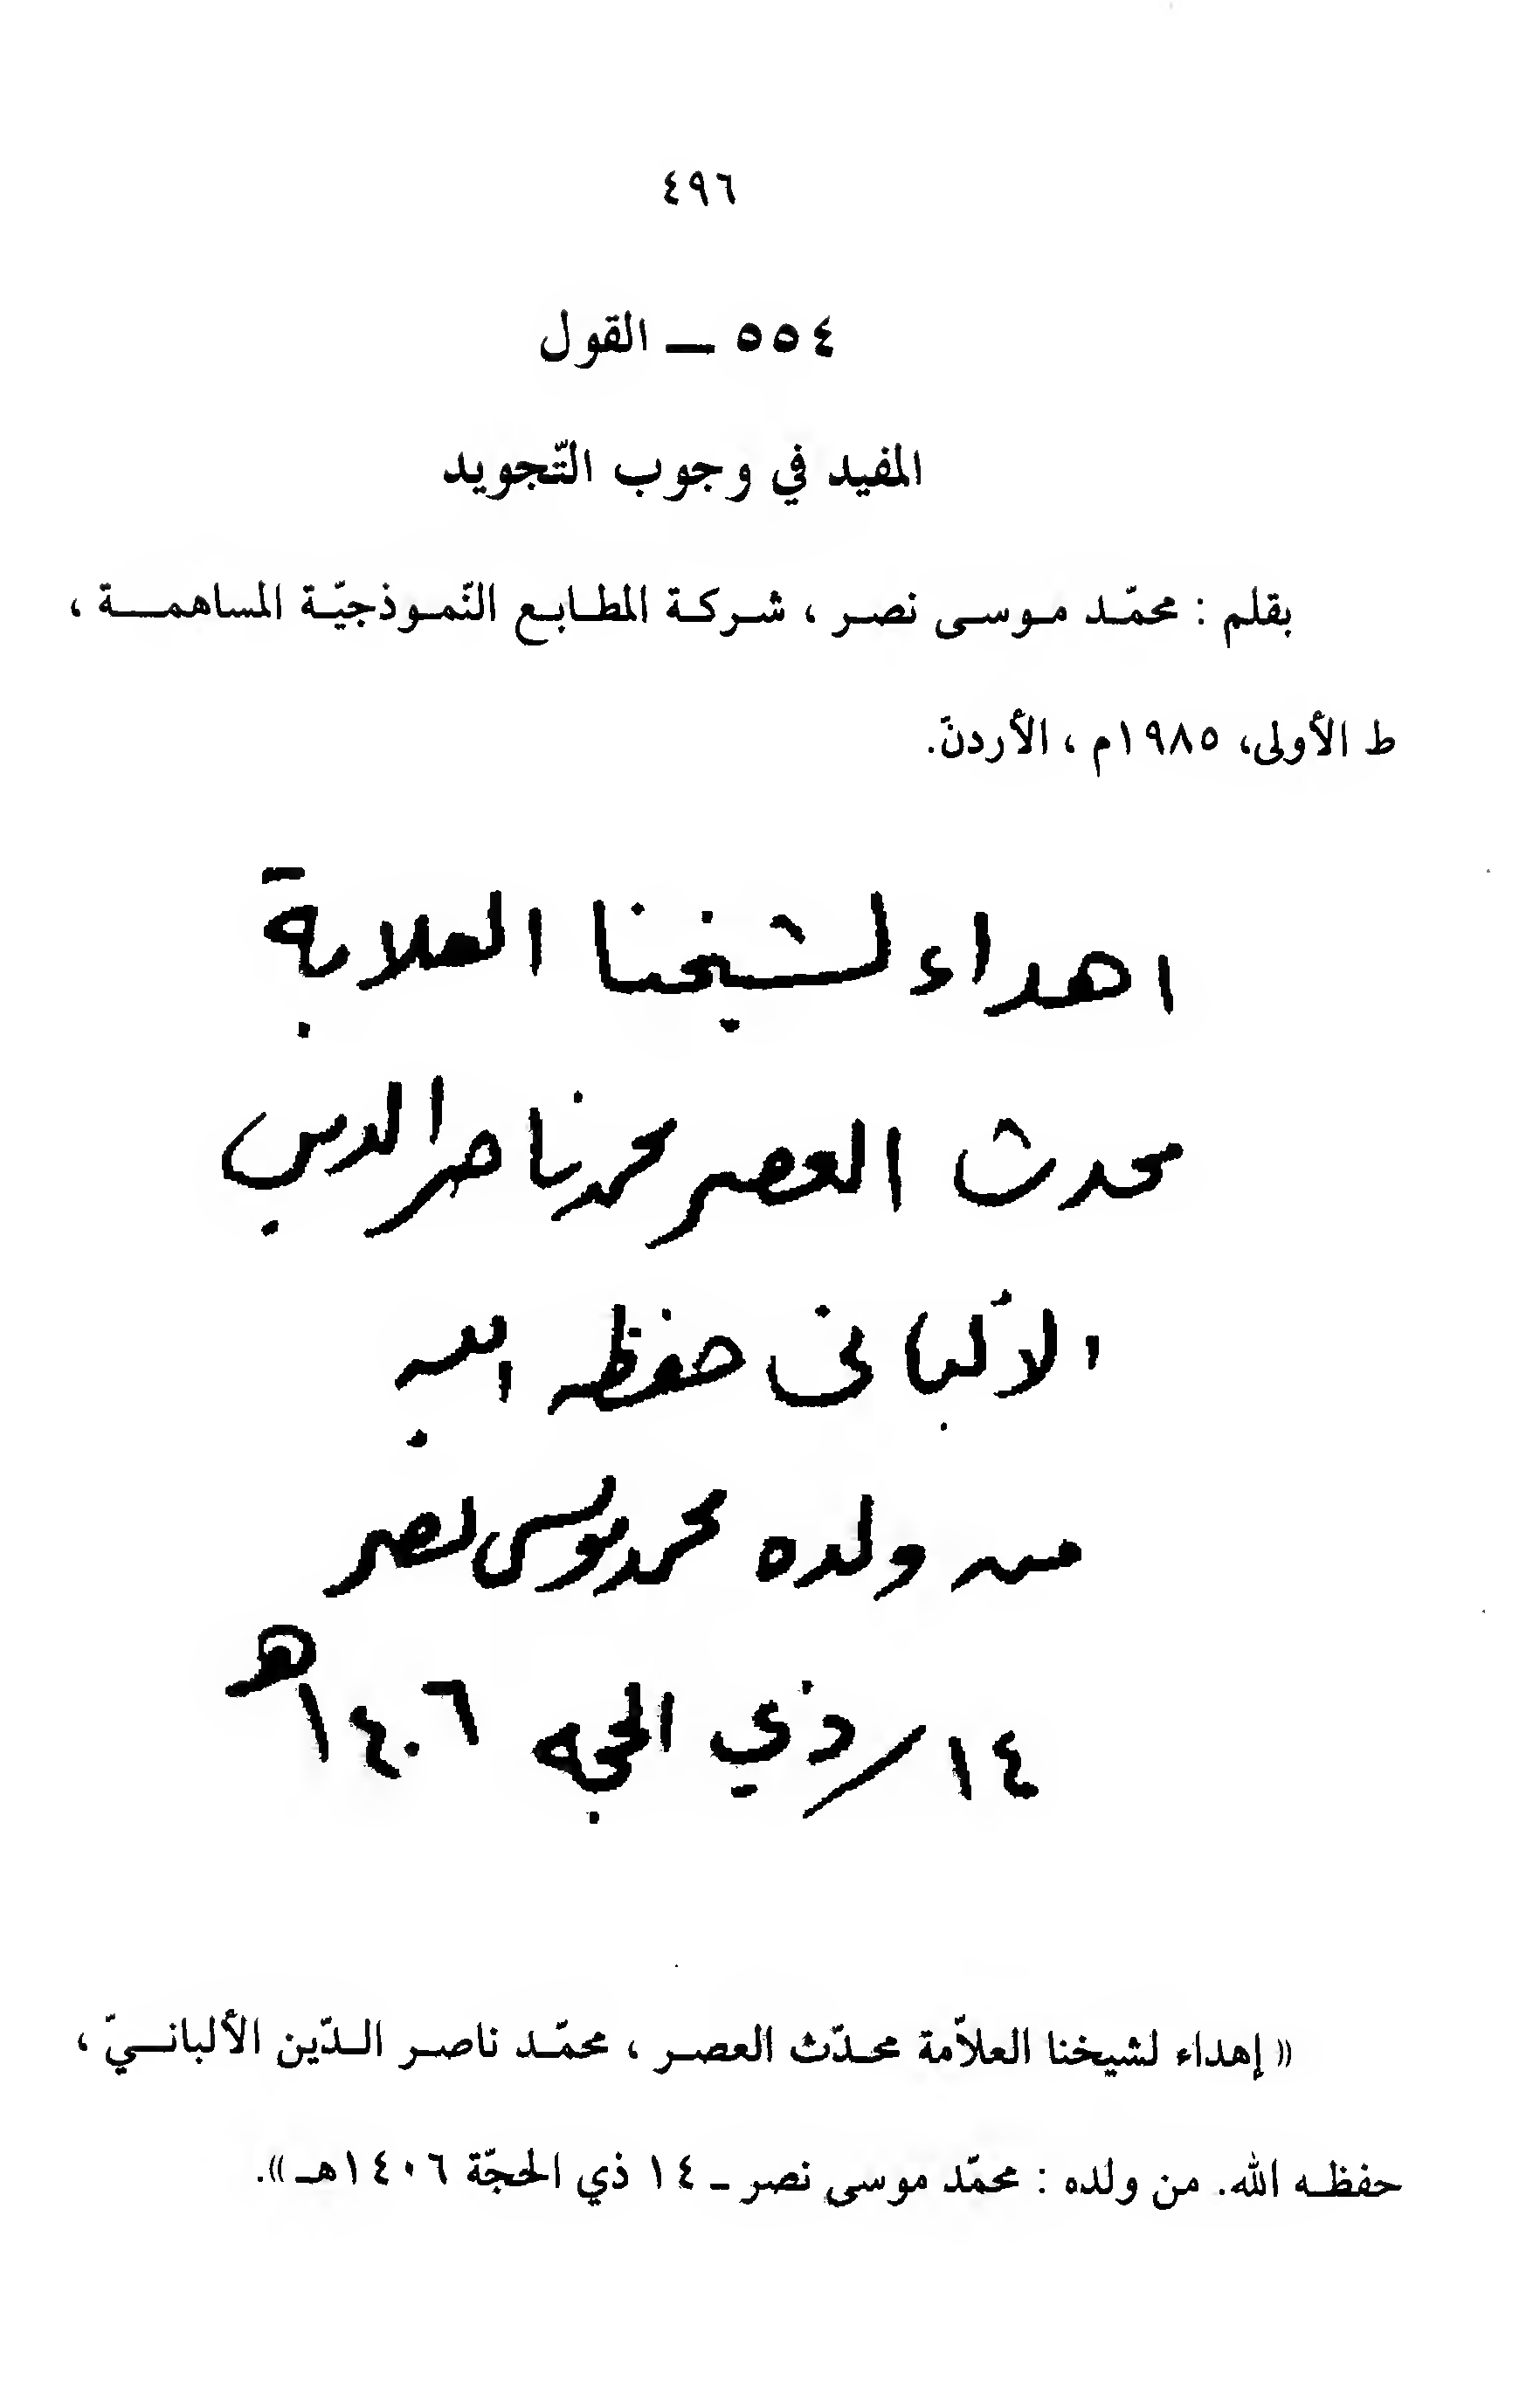 ٤٩٦
٥٥٤ ــ القول
المفيد في وجوب التّجويد
بقلم : محمّد موسى نصر ، شركة المطابع النّموذجيّة المساهمة ،
ط الأولى، ١٩٨٥م ، الأردنّ.
اهداء لشيخنا العلامة
محدث العصر محمد ناصر الدين
الألباني حفظه الله
من ولده محمد موسى نصر
١٤/ذي الحجه ١٤٠٦ھ
« إهداء لشيخنا العلاّمة محدّث العصر ، محمّد ناصر الدّين الألبانيّ ،
حفظه الله. من ولده : محمّد موسى نصر ـ ١٤ ذي الحجّة ١٤٠٦هـ ».